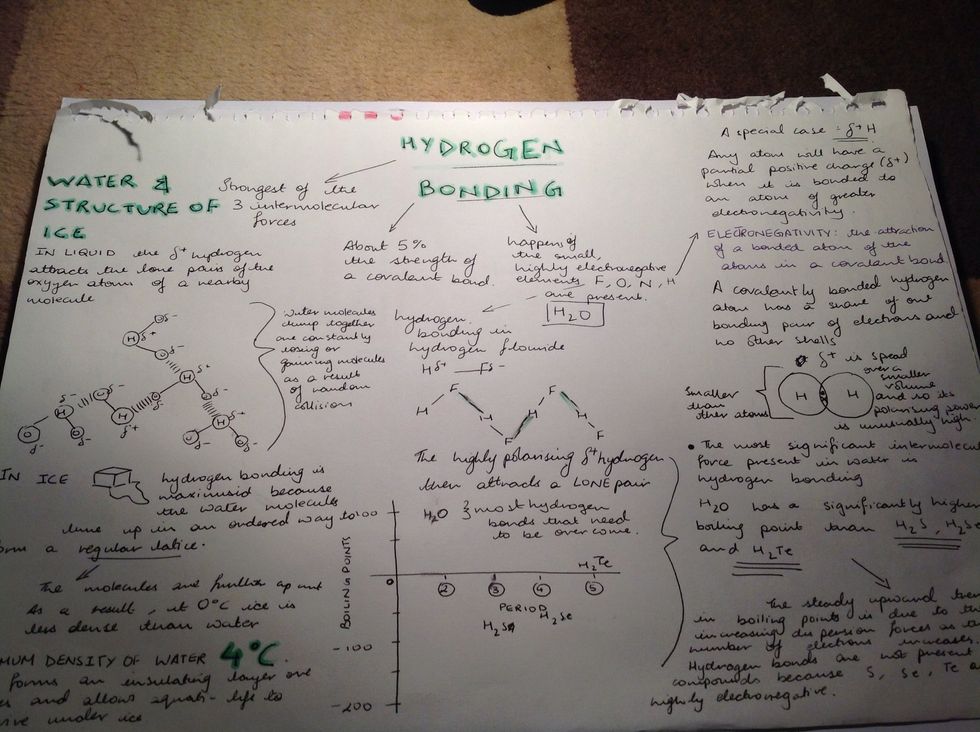 HYDROGEN
BONDING
Strongest of the
3 intermolecular
forces
About 5%
the strength of
a covalent bond.
happens if
the small,
highly electronegative
elements F, O, N, H
are present.
H₂O
hydrogen
bonding in
hydrogen flouride
Hδ+ — Fδ-
F F
H H H H
F F
The highly polarising δ+ hydrogen
then attracts a LONE pair
H₂O } most hydrogen
bonds that need
to be overcome.
BOILING POINTS
100
0
-100
-200
2 3 4 5
PERIOD
H₂Te
H₂Se
WATER &
STRUCTURE OF
ICE
IN LIQUID the δ+ hydrogen
attracts the lone pairs of the
oxygen atoms of a nearby
molecule
water molecules
clump together
are constantly
losing or
gaining molecules
as a result
of random
collisions
IN ICE
hydrogen bonding is
because
the water molecules
line up in an ordered way to
a regular latice.
The molecules are apart
As a result, at 0°C ice is
less dense than water
MUM DENSITY OF WATER 4°C.
forms an insulating layer
and allows life to
under ice
A special case = δ+ H
Any atom will have a
partial positive charge (δ+)
when it is bonded to
an atom of greater
electronegativity.
ELECTRONEGATIVITY: the attraction
of a bonded atom of the
atoms in a covalent bond.
A covalently bonded hydrogen
atom has a share of one
bonding pair of electrons and
no other shells
δ+ is spread
over a
smaller
volume
and so its
polarising power
is unusually high.
Smaller
than
other atoms
H H
• The most significant intermolec
force present in water is
hydrogen bonding
H₂O has a significantly higher
boiling point than H₂S, H₂Se
and H₂Te
The steady upward
in boiling points is due to
increasing forces as
number of electrons increases.
Hydrogen bonds are not present
compounds because S, Se, Te
highly electronegative.